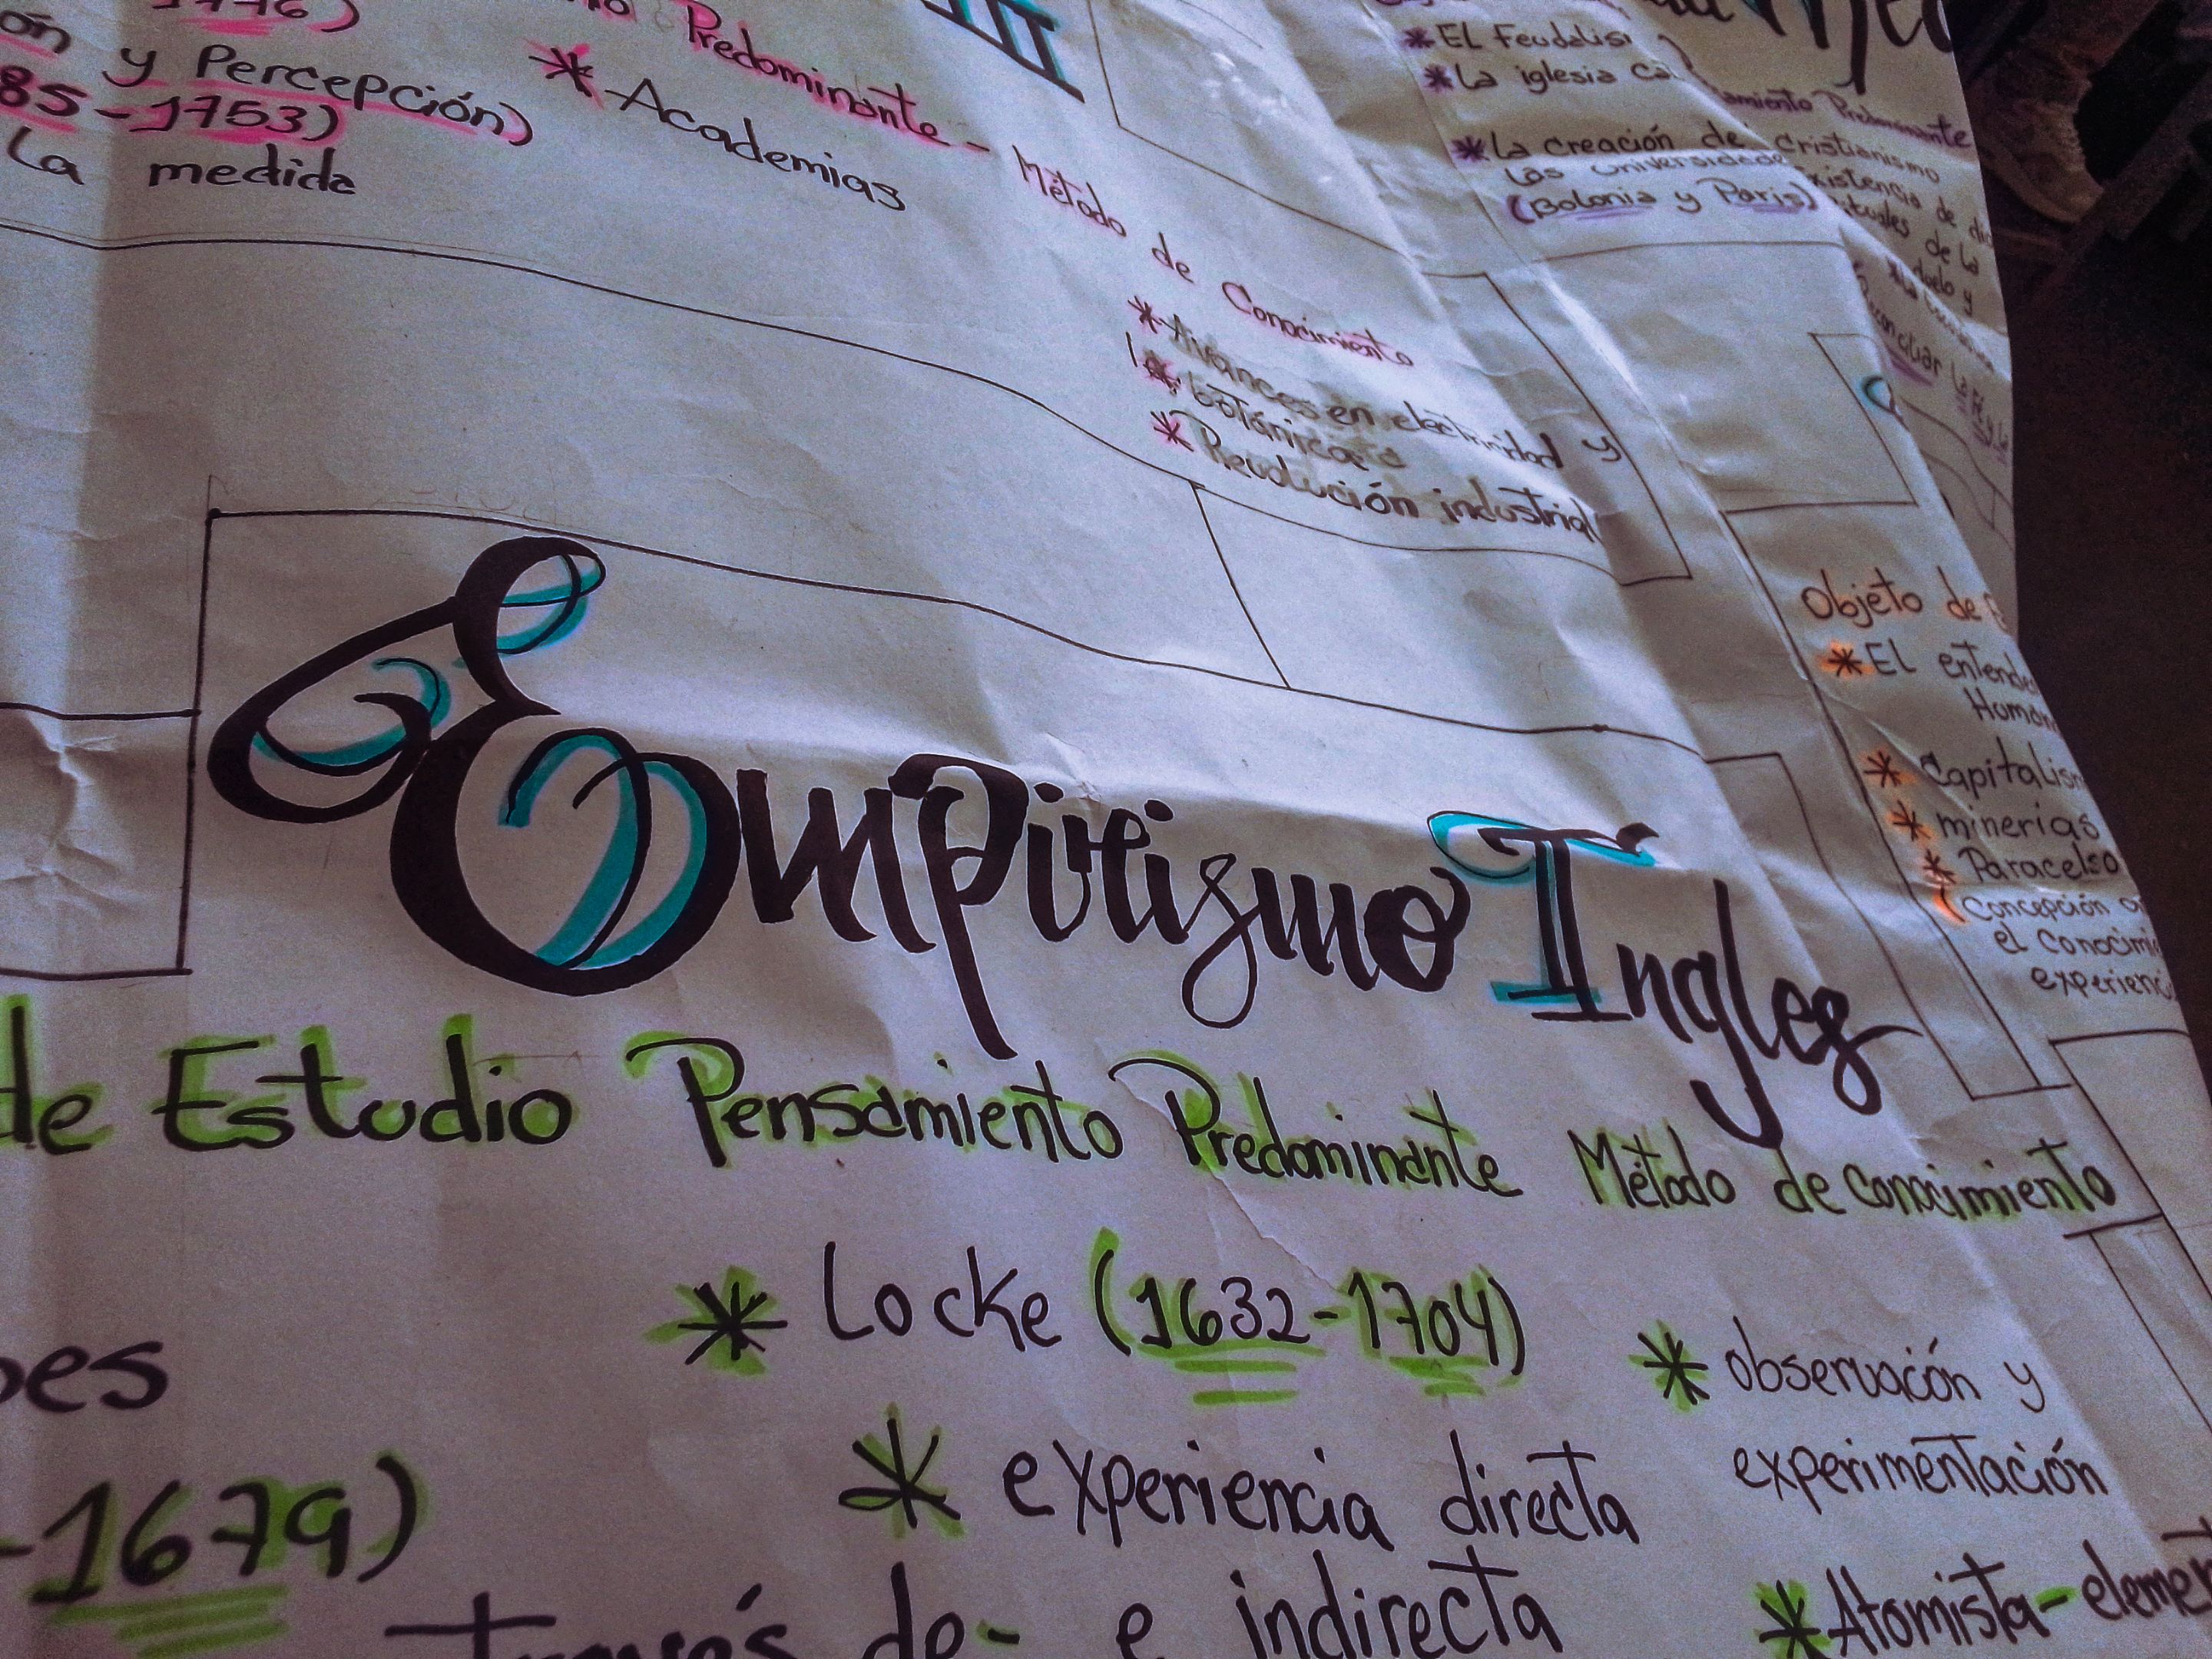 1776)
y Percepción)
85-1753)
La medida
Predominante - Método
de Conocimiento
* Academias
* Avances en electricidad y
* botánica
* Revolución industrial
III
* EL Feudalis
* La iglesia Ca
* La creación de
las Universidade
(Bolonia y París)
amiento Predominante
Cristianismo
xistencia de di
ituales de la
delo y
conciliar La Fé y la
Objeto de E
* El entende
Human
* Capitalism
* minerías
* Paracelso
(Concepción
el conocimi
experienci
Empirismo Ingles
de Estudio Pensamiento Predominante Método de conocimiento
* Locke (1632-1704)
* observación y
experimentación
bes
* experiencia directa
e indirecta
-1679)
través de-
* Atomista-element